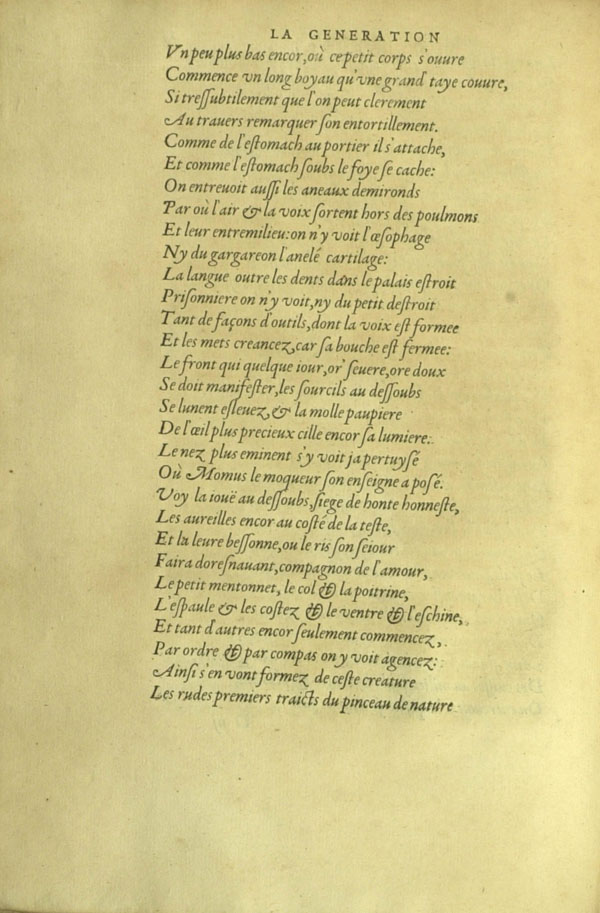 LA GENERATION
Vn peu plus bas encor, où ce petit corps s'ouure
Commence vn long boyau qu'vne grand' taye couure,
Si treſſubtilement que l'on peut clerement
Au trauers remarquer ſon entortillement.
Comme de l'eſtomach au portier il s'attache,
Et comme l'eſtomach ſoubs le foye ſe cache:
On entreuoit auſſi les aneaux demironds
Par où l'air & la voix ſortent hors des poulmons
Et leur entremilieu: on n'y voit l'œſophage
Ny du gargareon l'anelé cartilage:
La langue outre les dents dans le palais eſtroit
Priſonniere on n'y voit, ny du petit deſtroit
Tant de façons d'outils, dont la voix eſt formee
Et les mets creancez, car ſa bouche eſt fermee:
Le front qui quelque iour, or' ſeuere, ore doux
Se doit manifeſter, les ſourcils au deſſoubs
Se lunent eſleuez, & la molle paupiere
De l'œil plus precieux cille encor ſa lumiere:
Le nez plus eminent s'y voit ja pertuyſé
Où Momus le moqueur ſon enſeigne a poſé.
Voy la iouë au deſſoubs, ſiege de honte honneſte,
Les aureilles encor au coſté de la teſte,
Et la leure beſſonne, ou le ris ſon ſeiour
Faira doreſnauant, compagnon de l'amour,
Le petit mentonnet, le col & la poitrine,
L'eſpaule & les coſtez & le ventre & l'eſchine,
Et tant d'autres encor ſeulement commencez,
Par ordre & par compas on y voit agencez:
Ainſi s'en vont formez de ceſte creature
Les rudes premiers traicts du pinceau de nature